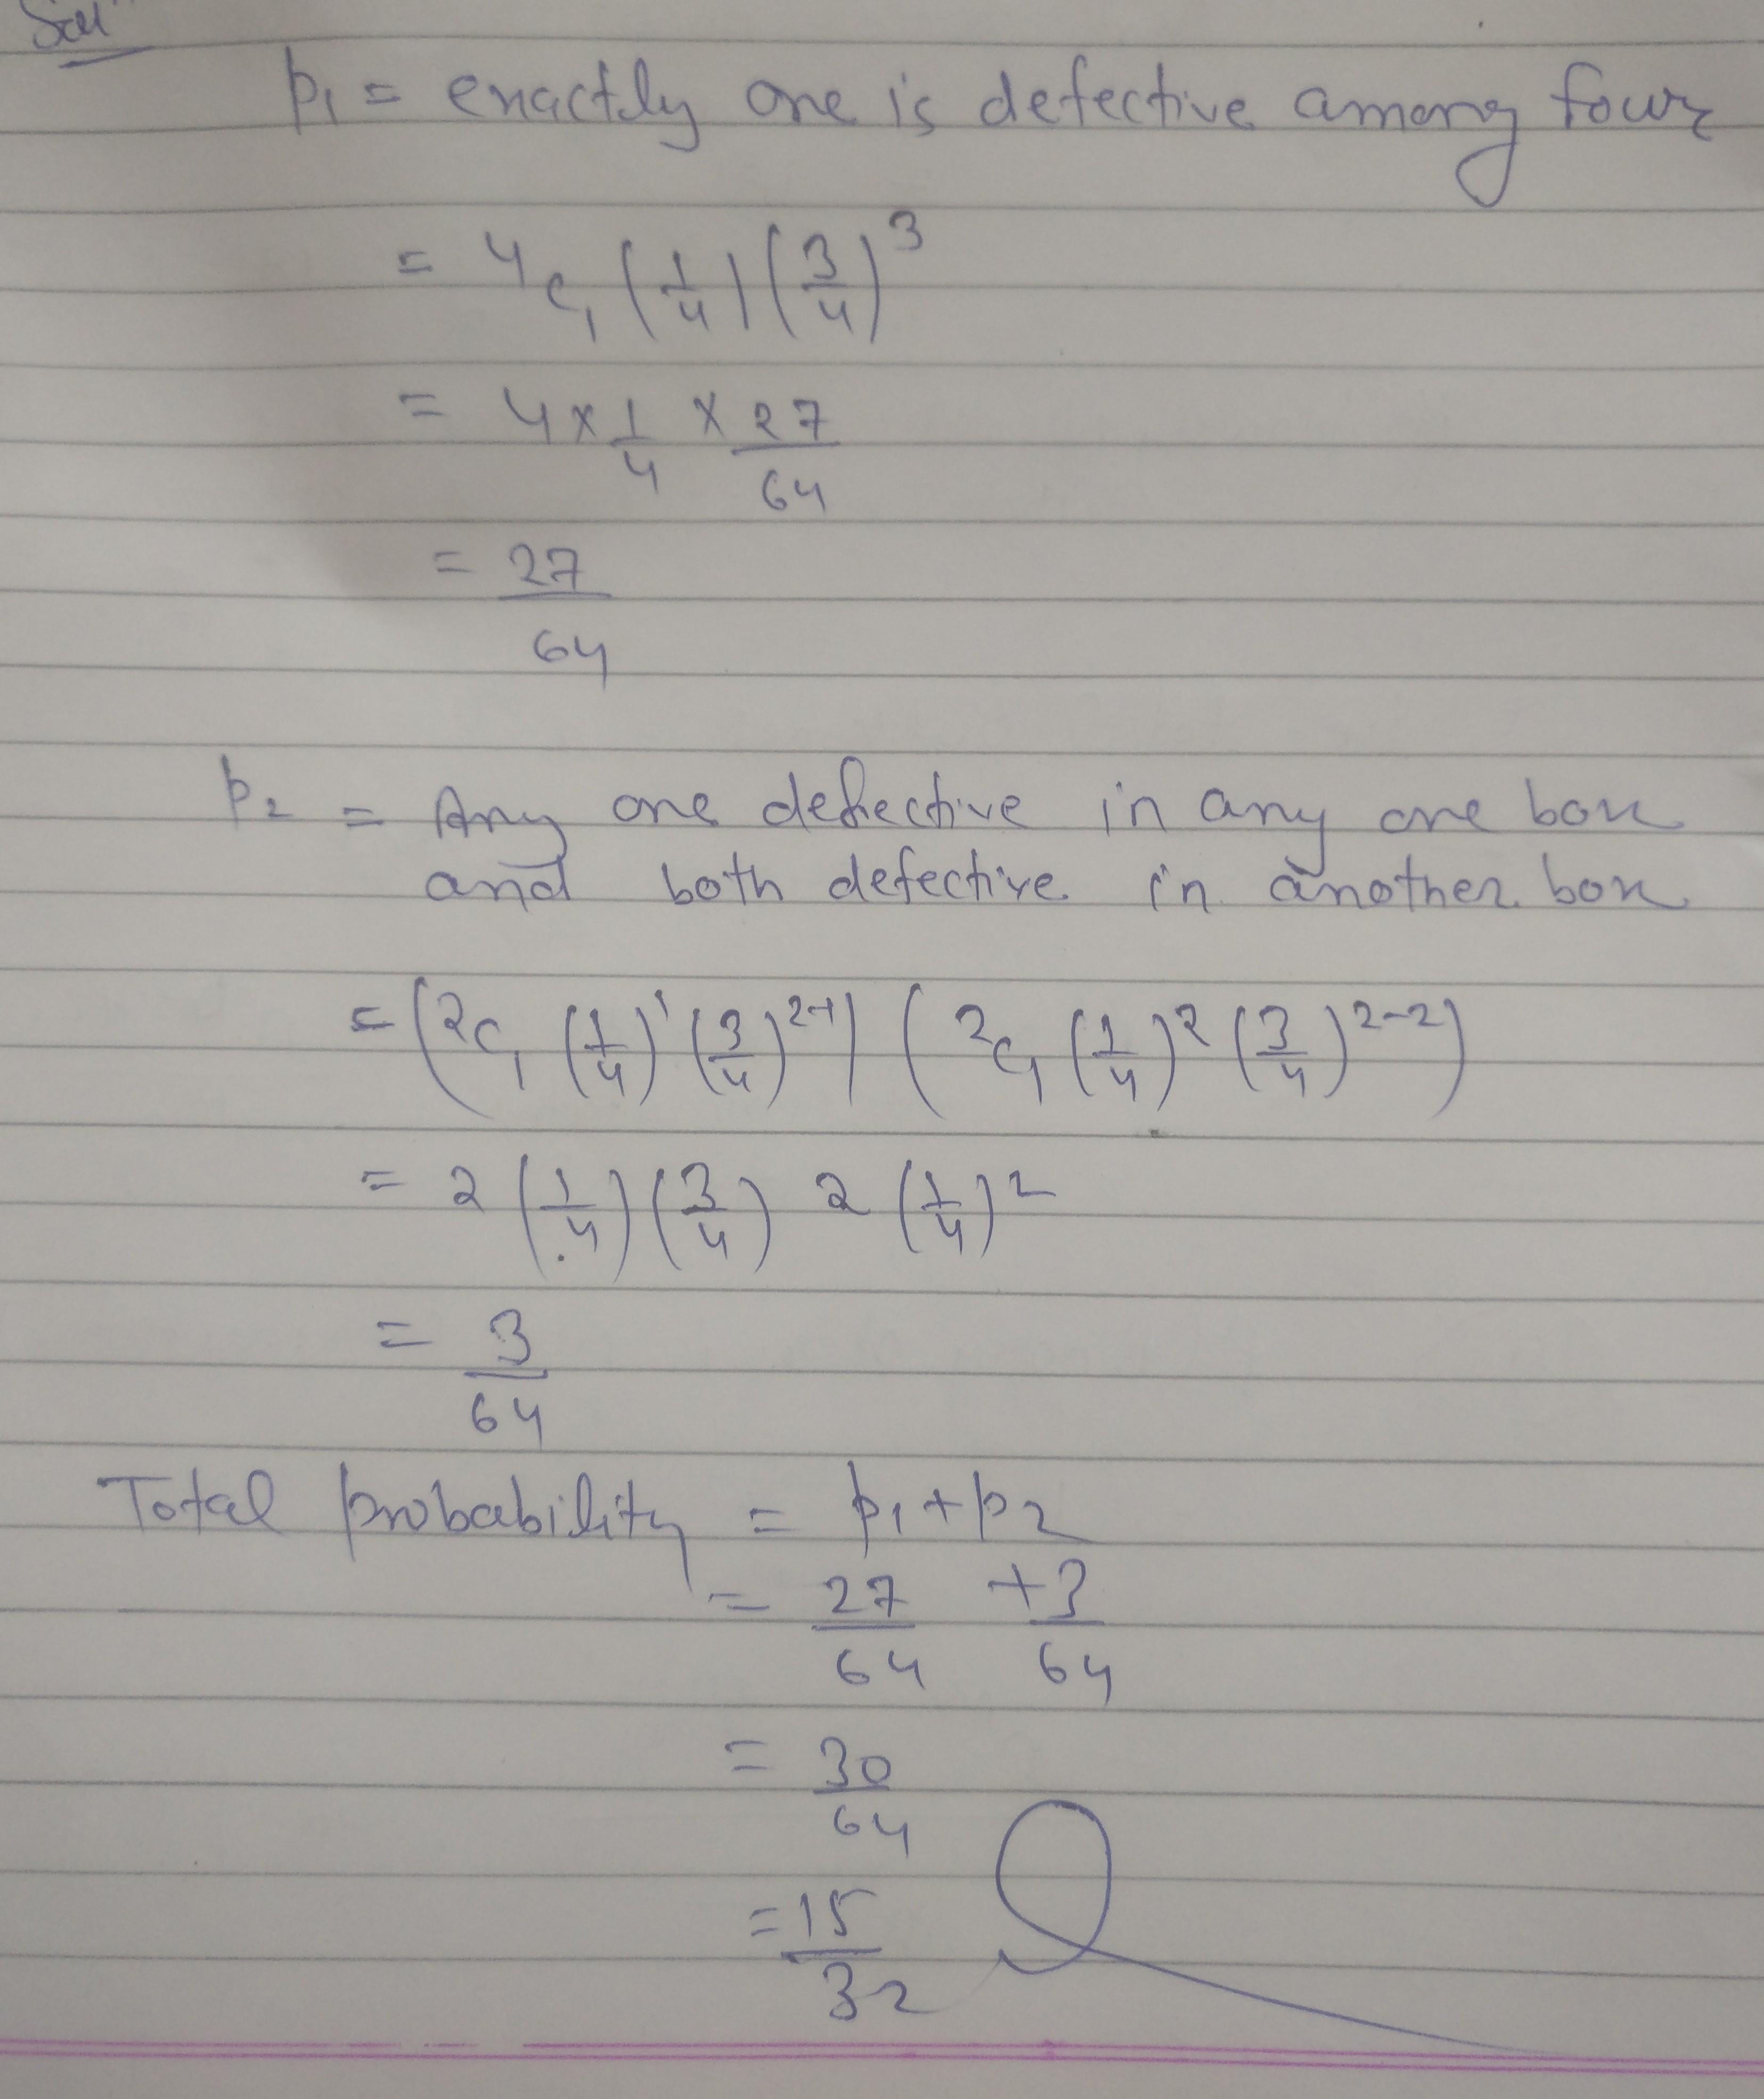 Sol
p₁ = exactly one is defective among four
= ⁴C₁ (1/4) (3/4)³
= 4 × 1/4 × 27/64
= 27/64
p₂ = Any one defective in any one box
and both defective in another box
= (²C₁ (1/4)¹ (3/4)²⁻¹) (²C₁ (1/4)² (3/4)²⁻²)
= 2 (1/4) (3/4) 2 (1/4)²
= 3/64
Total probability = p₁ + p₂
= 27/64 + 3/64
= 30/64
= 15/32